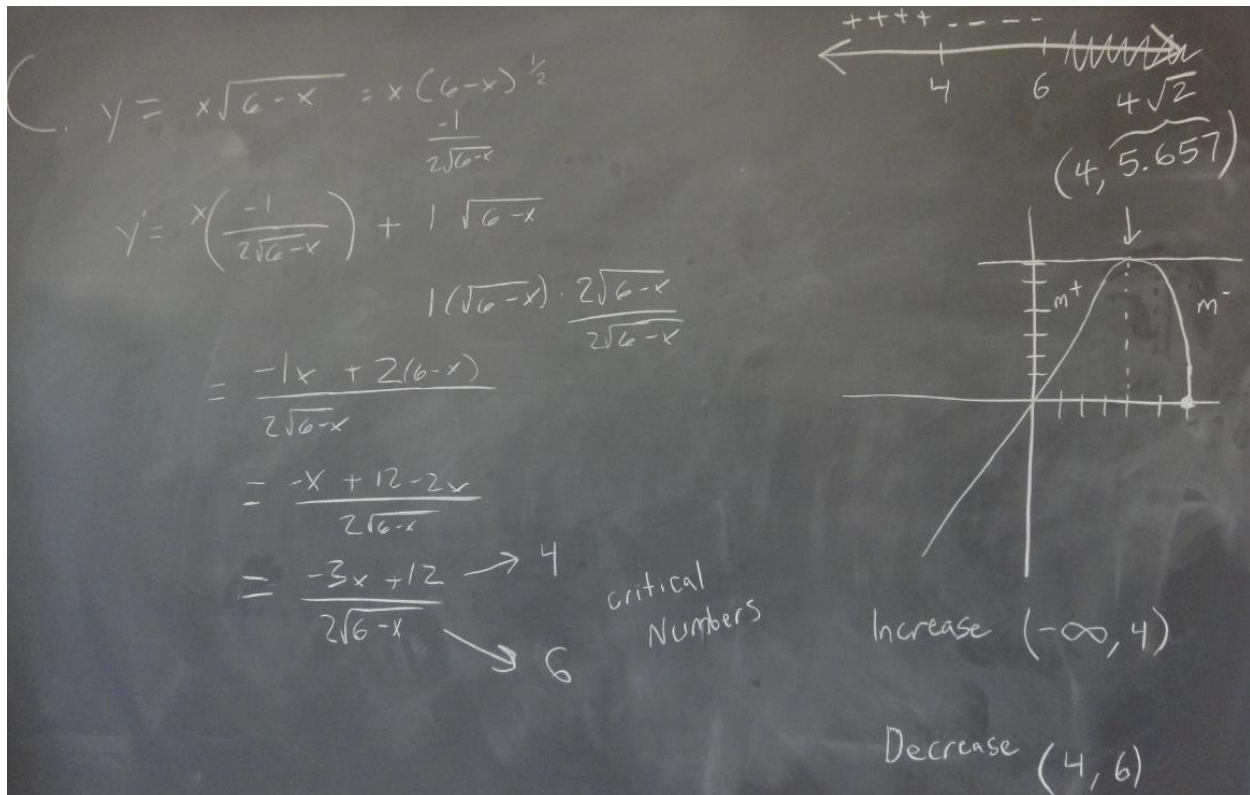 C. y = x√(6-x) = x(6-x)^(1/2)
-1/(2√(6-x))
y' = x(-1/(2√(6-x))) + 1 √(6-x)
1(√(6-x)) · 2√(6-x)/(2√(6-x))
= (-1x + 2(6-x))/(2√(6-x))
= (-x + 12 - 2x)/(2√(6-x))
= (-3x + 12)/(2√(6-x)) → 4
→ 6
critical
Numbers
++++ - - - - -
4 6
4√2
(4, 5.657)
m⁺ m⁻
Increase (-∞, 4)
Decrease (4, 6)